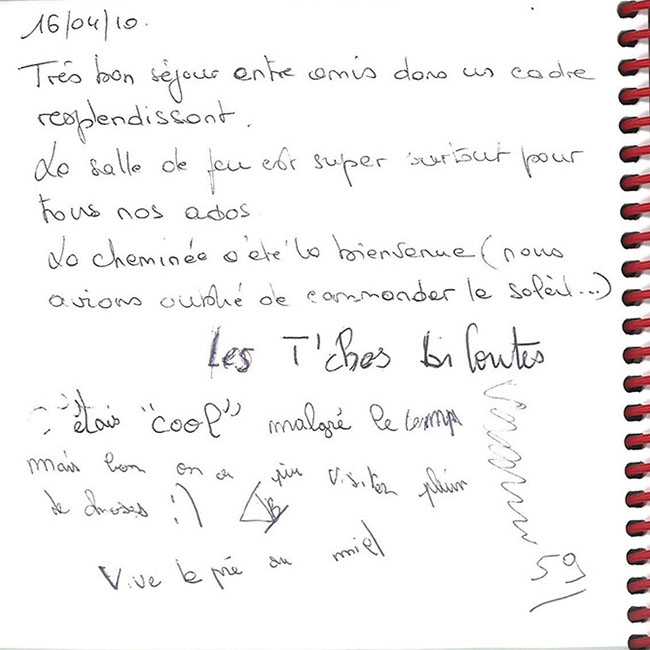 16/04/10.
Très bon séjour entre amis dans un cadre
resplendissant.
La salle de jeu est super surtout pour
tous nos ados.
La cheminée a été la bienvenue (nous
avions oublié de commander le soleil...)
Les T'chos biloutes
C'étais "cool" malgré le temps
mais bon on a pu visiter plein
de choses :)
Vive le pré au miel
59